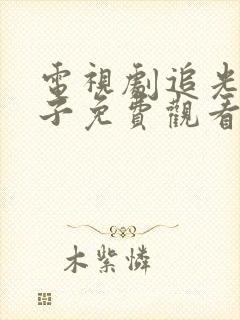 電視劇追光
子免費觀看
木紫憐